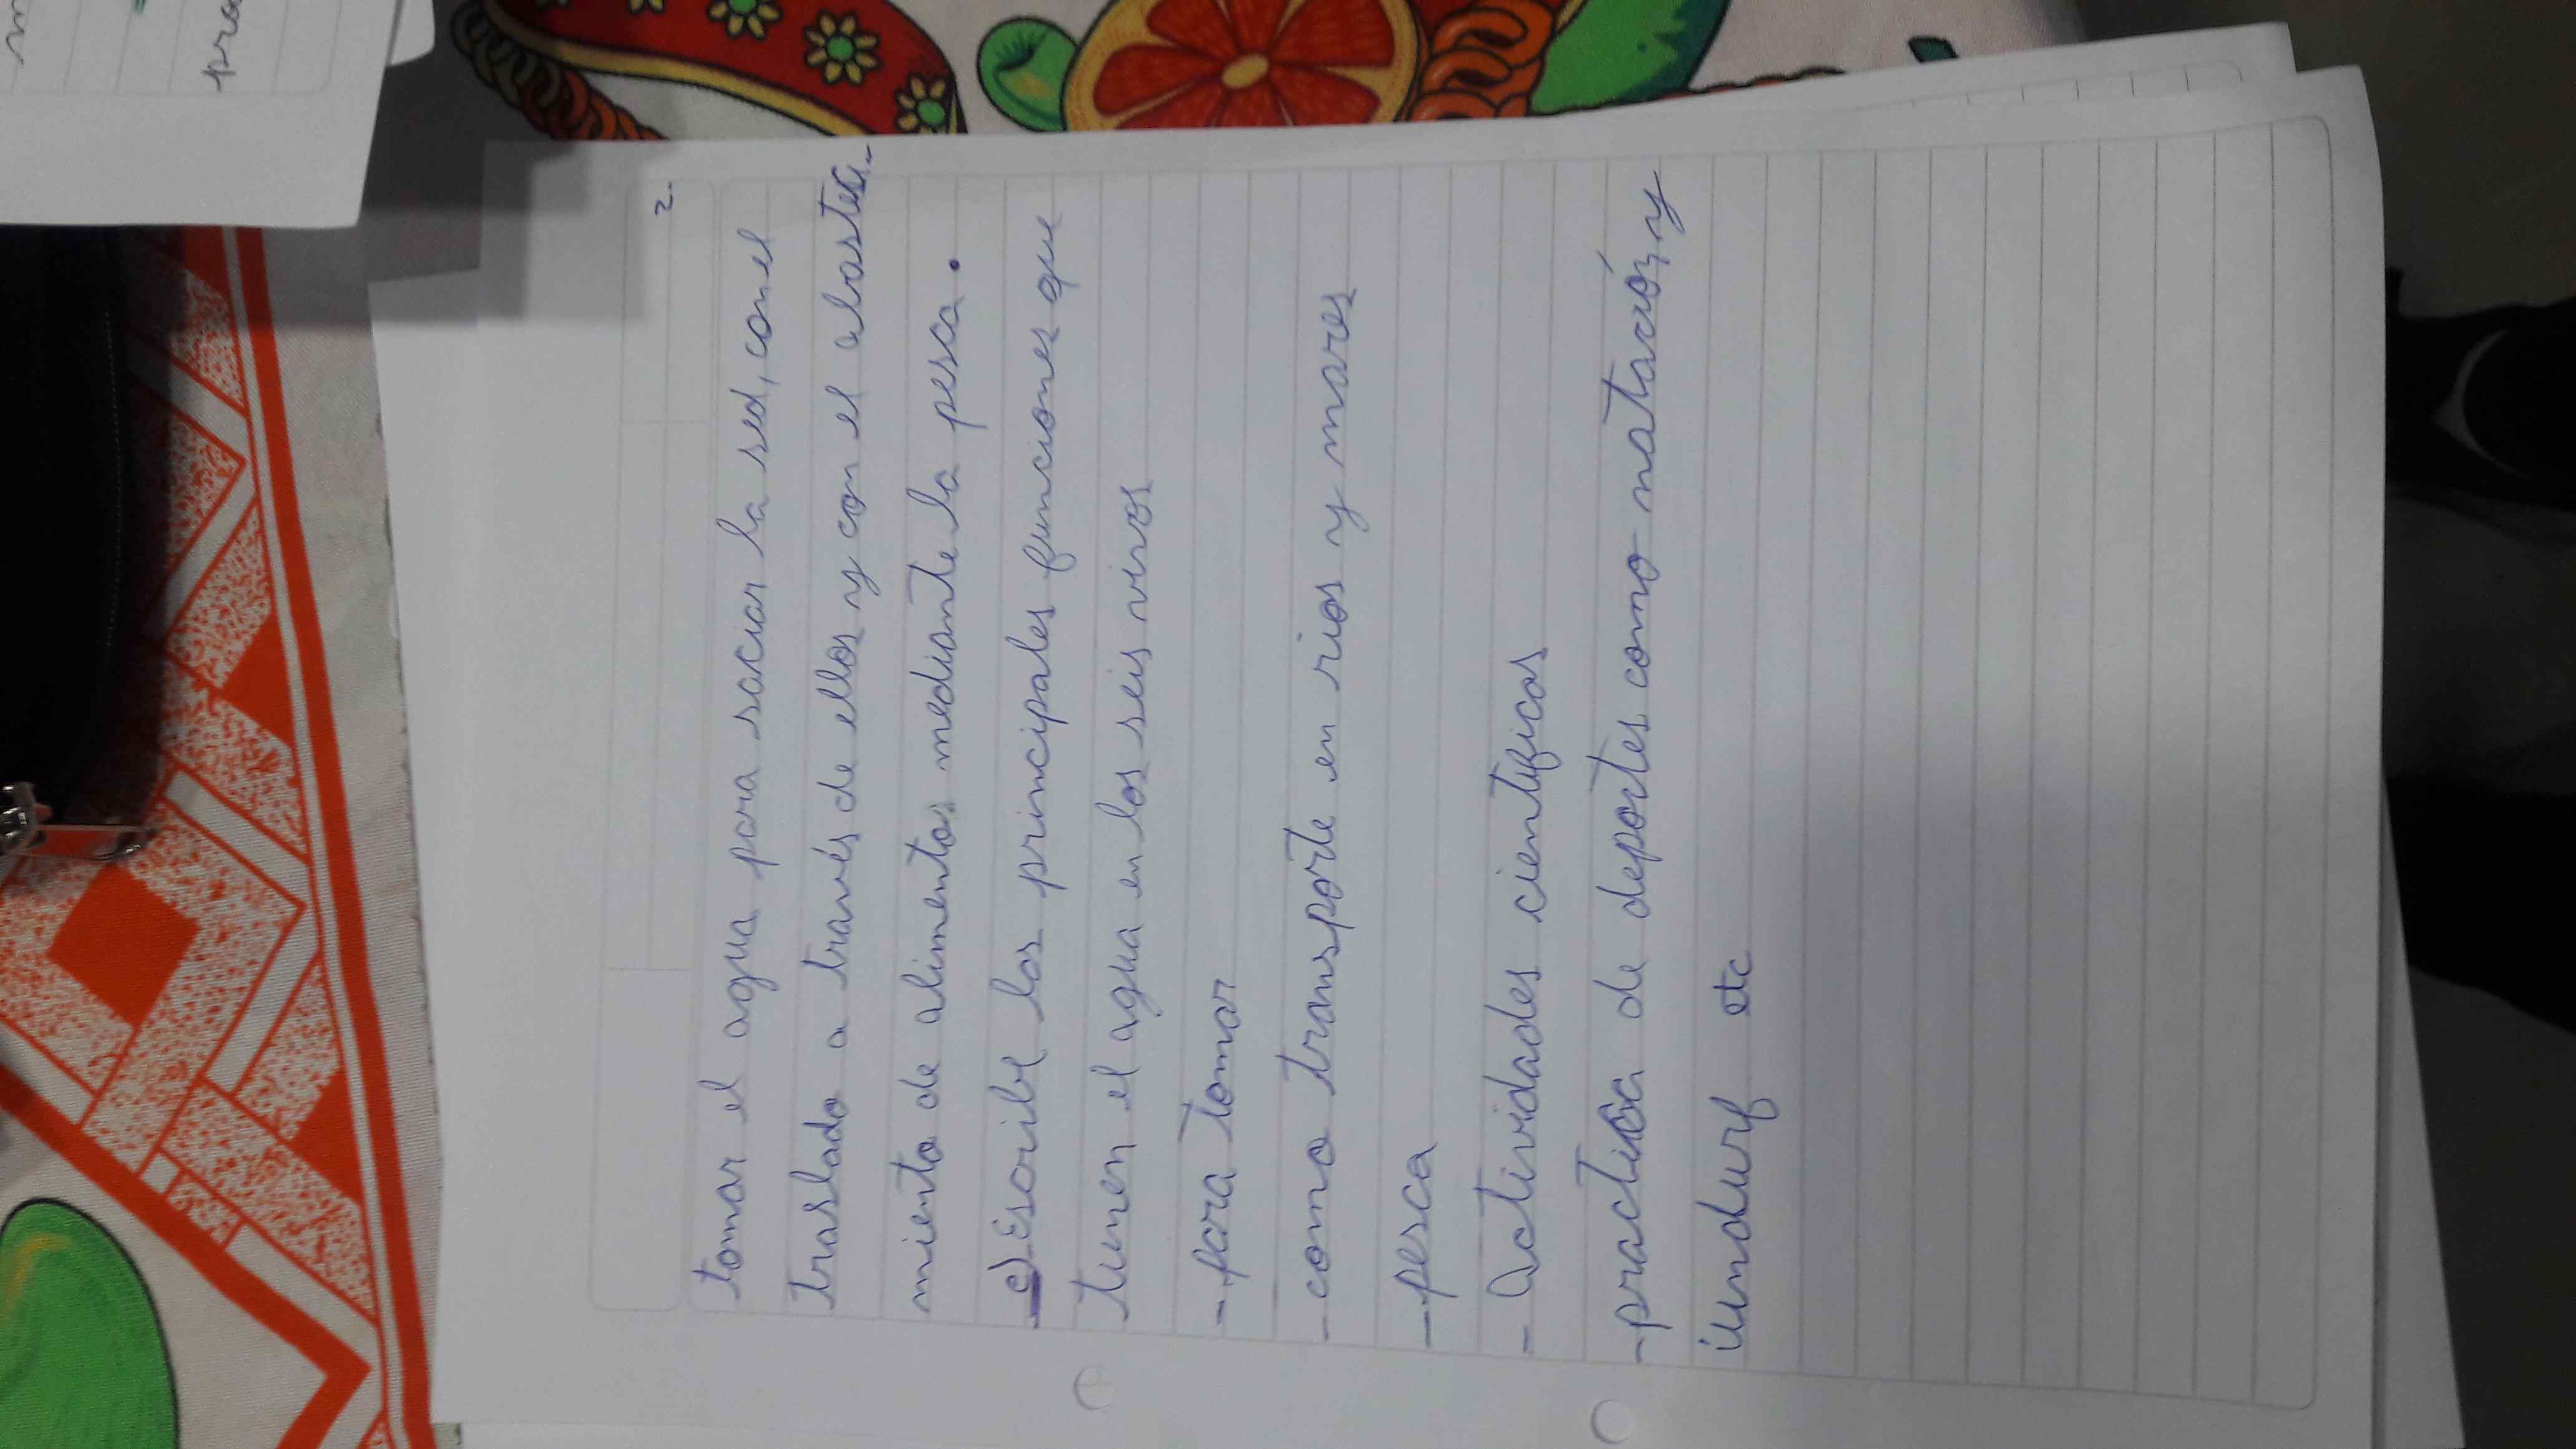 2
tomar el agua para saciar la sed, con el
traslado a través de ellos y con el abasteci-
miento de alimentos mediante la pesca.
c) Escribe las principales funciones que
tienen el agua en los seis vivos
- para tomar
- como transporte en rios y mares
- pesca
- Actividades cientificas
- practica de deportes como natación, y
etc